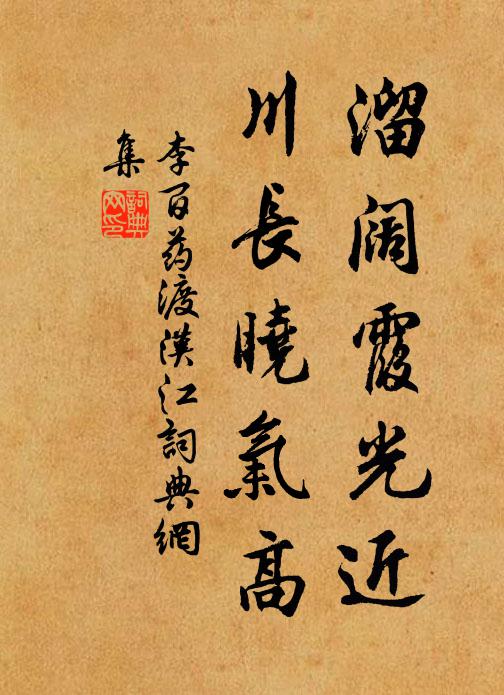 溜阔霞光近
川長曉氣高
李百药渡漢江詞典網
集
詞典网印